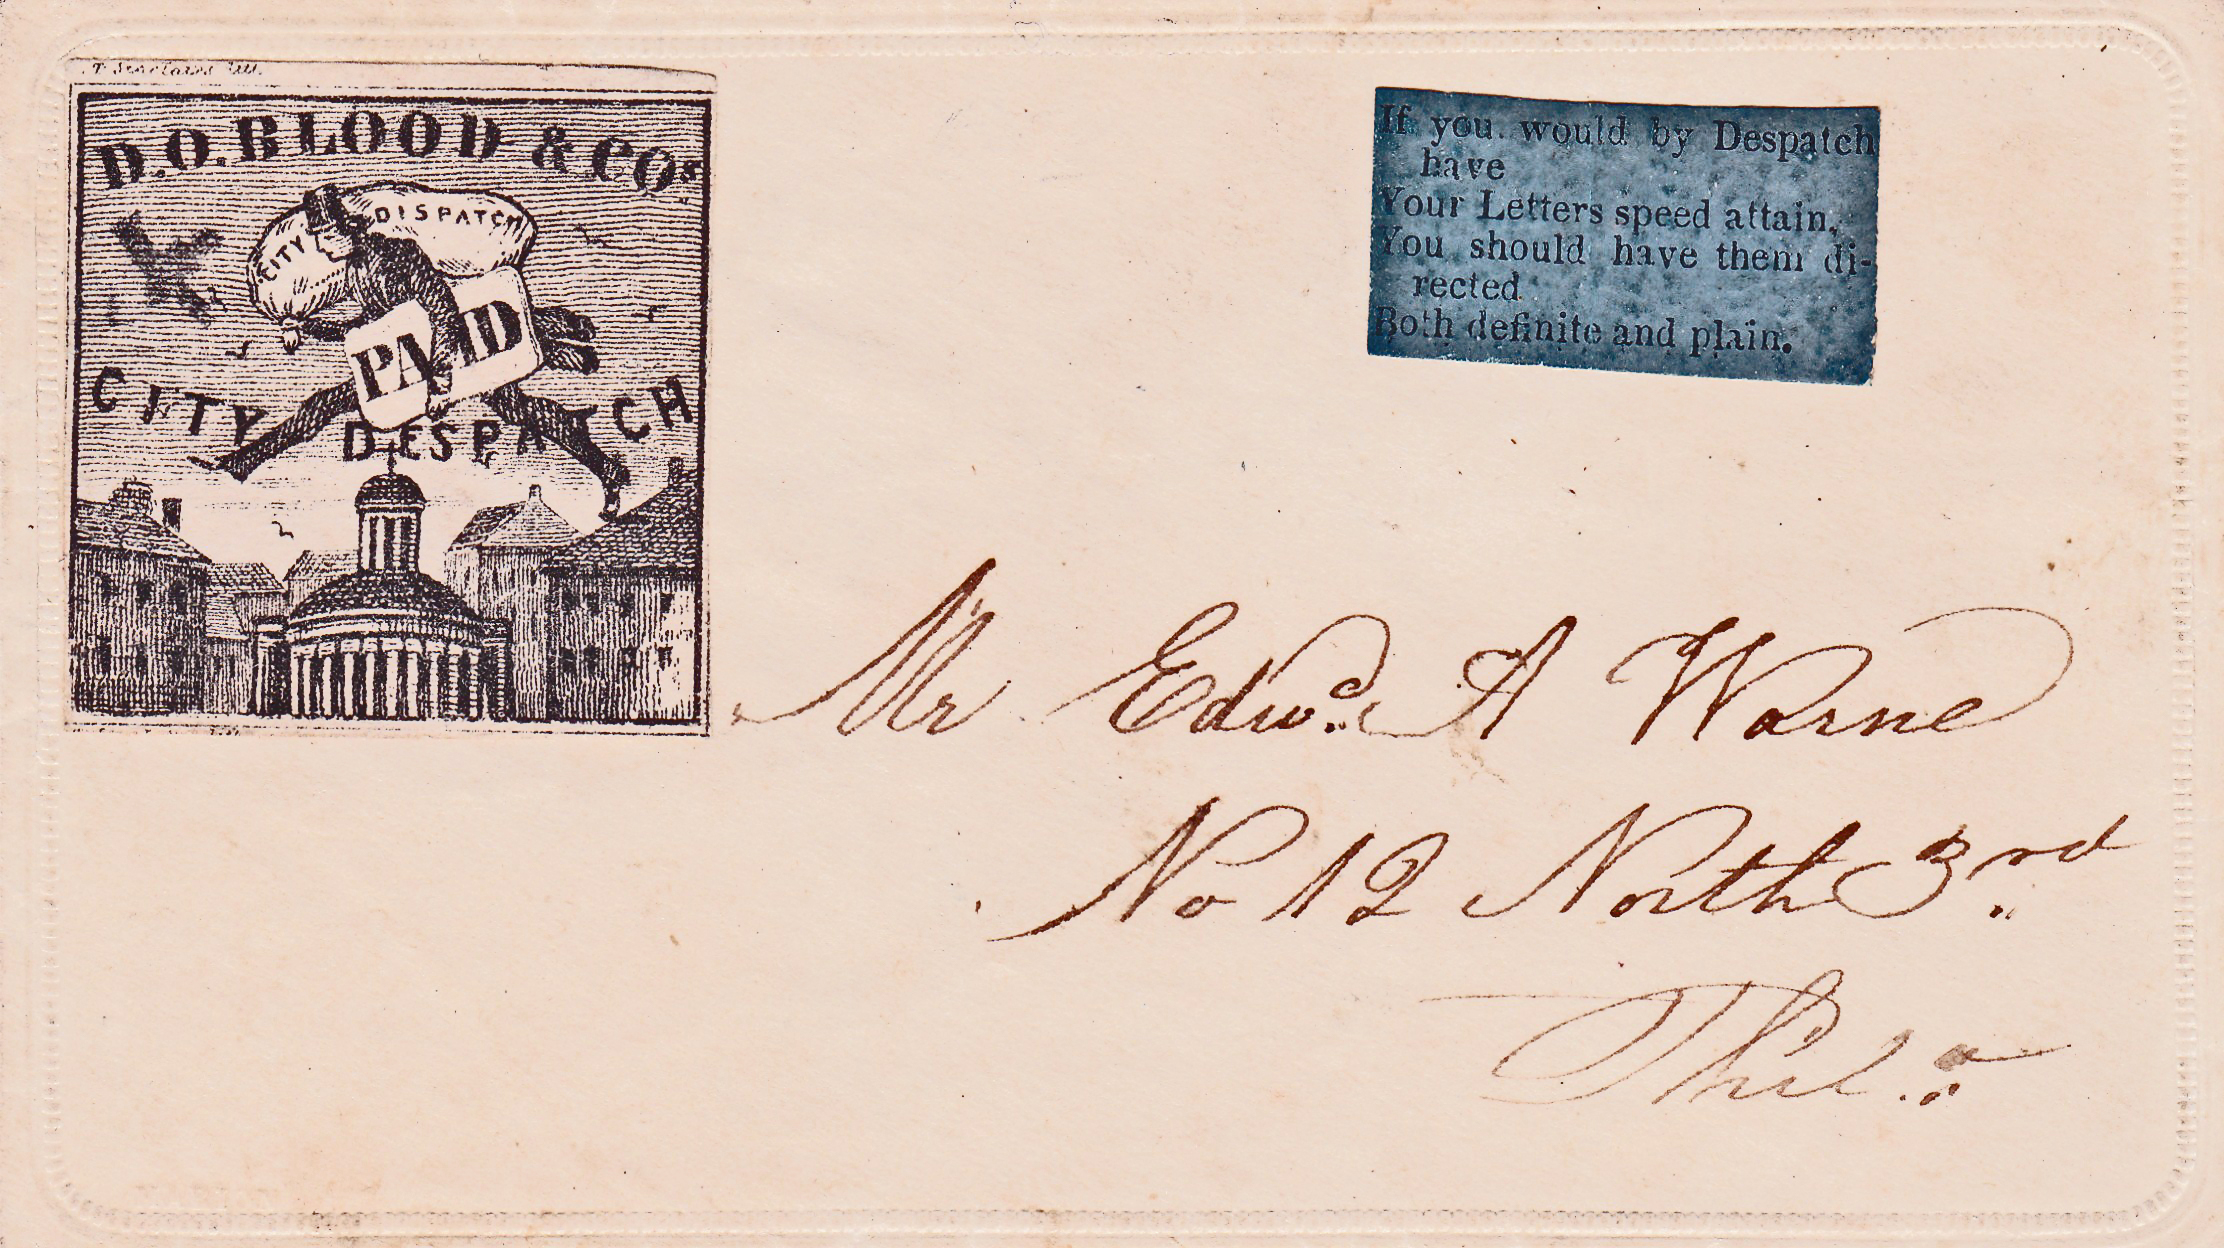 T Sinclairs lith.
D.O. BLOOD & COs
CITY DISPATCH
PAID
CITY DESPATCH
If you would by Despatch
have
Your Letters speed attain,
You should have them di-
rected
Both definite and plain.
Mr Edwd. A Warne
No 12 North 3rd
Phila